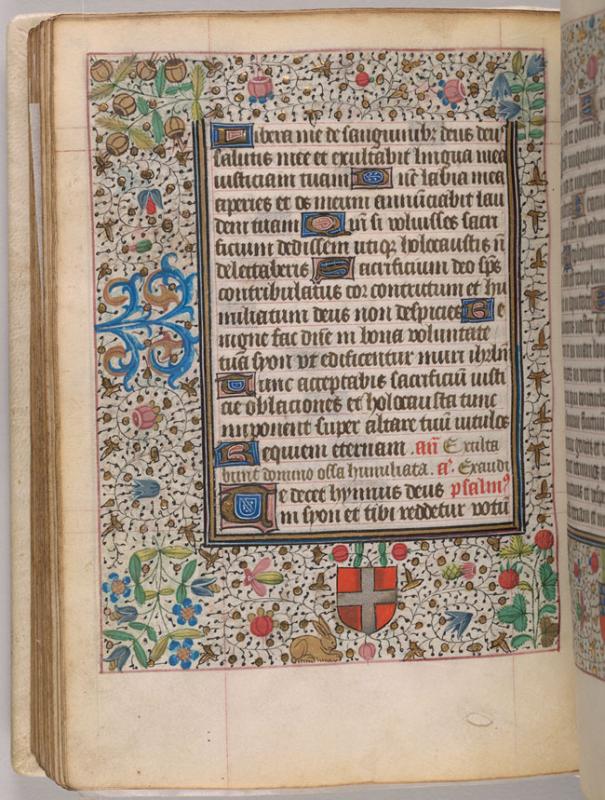 Libera me de sanguinibꝫ deus deꝰ
salutis mee et exultabit lingua mea
iusticiam tuam Dn̄e labia mea
aperies et os meum annūciabit lau
dem tuam Qm̄ si voluisses sacri
ficium dedissem utiqꝫ holocaustis n̄
delectaberis Sacrificium deo sp̄s
contribulatus cor contritum et hu
miliatum deus non despicies Be
nigne fac dn̄e in bona voluntate
tua syon vt edificentur muri ihrl̄m
Tunc acceptabis sacrificiū iusti
cie oblaciones et holocausta tunc
imponent super altare tuū vitulos
Requiem eternam. an̄ Exulta
bunt domino ossa humiliata. a. Exaudi
Te decet hymnus deus psalmꝰ
in syon et tibi reddetur votū